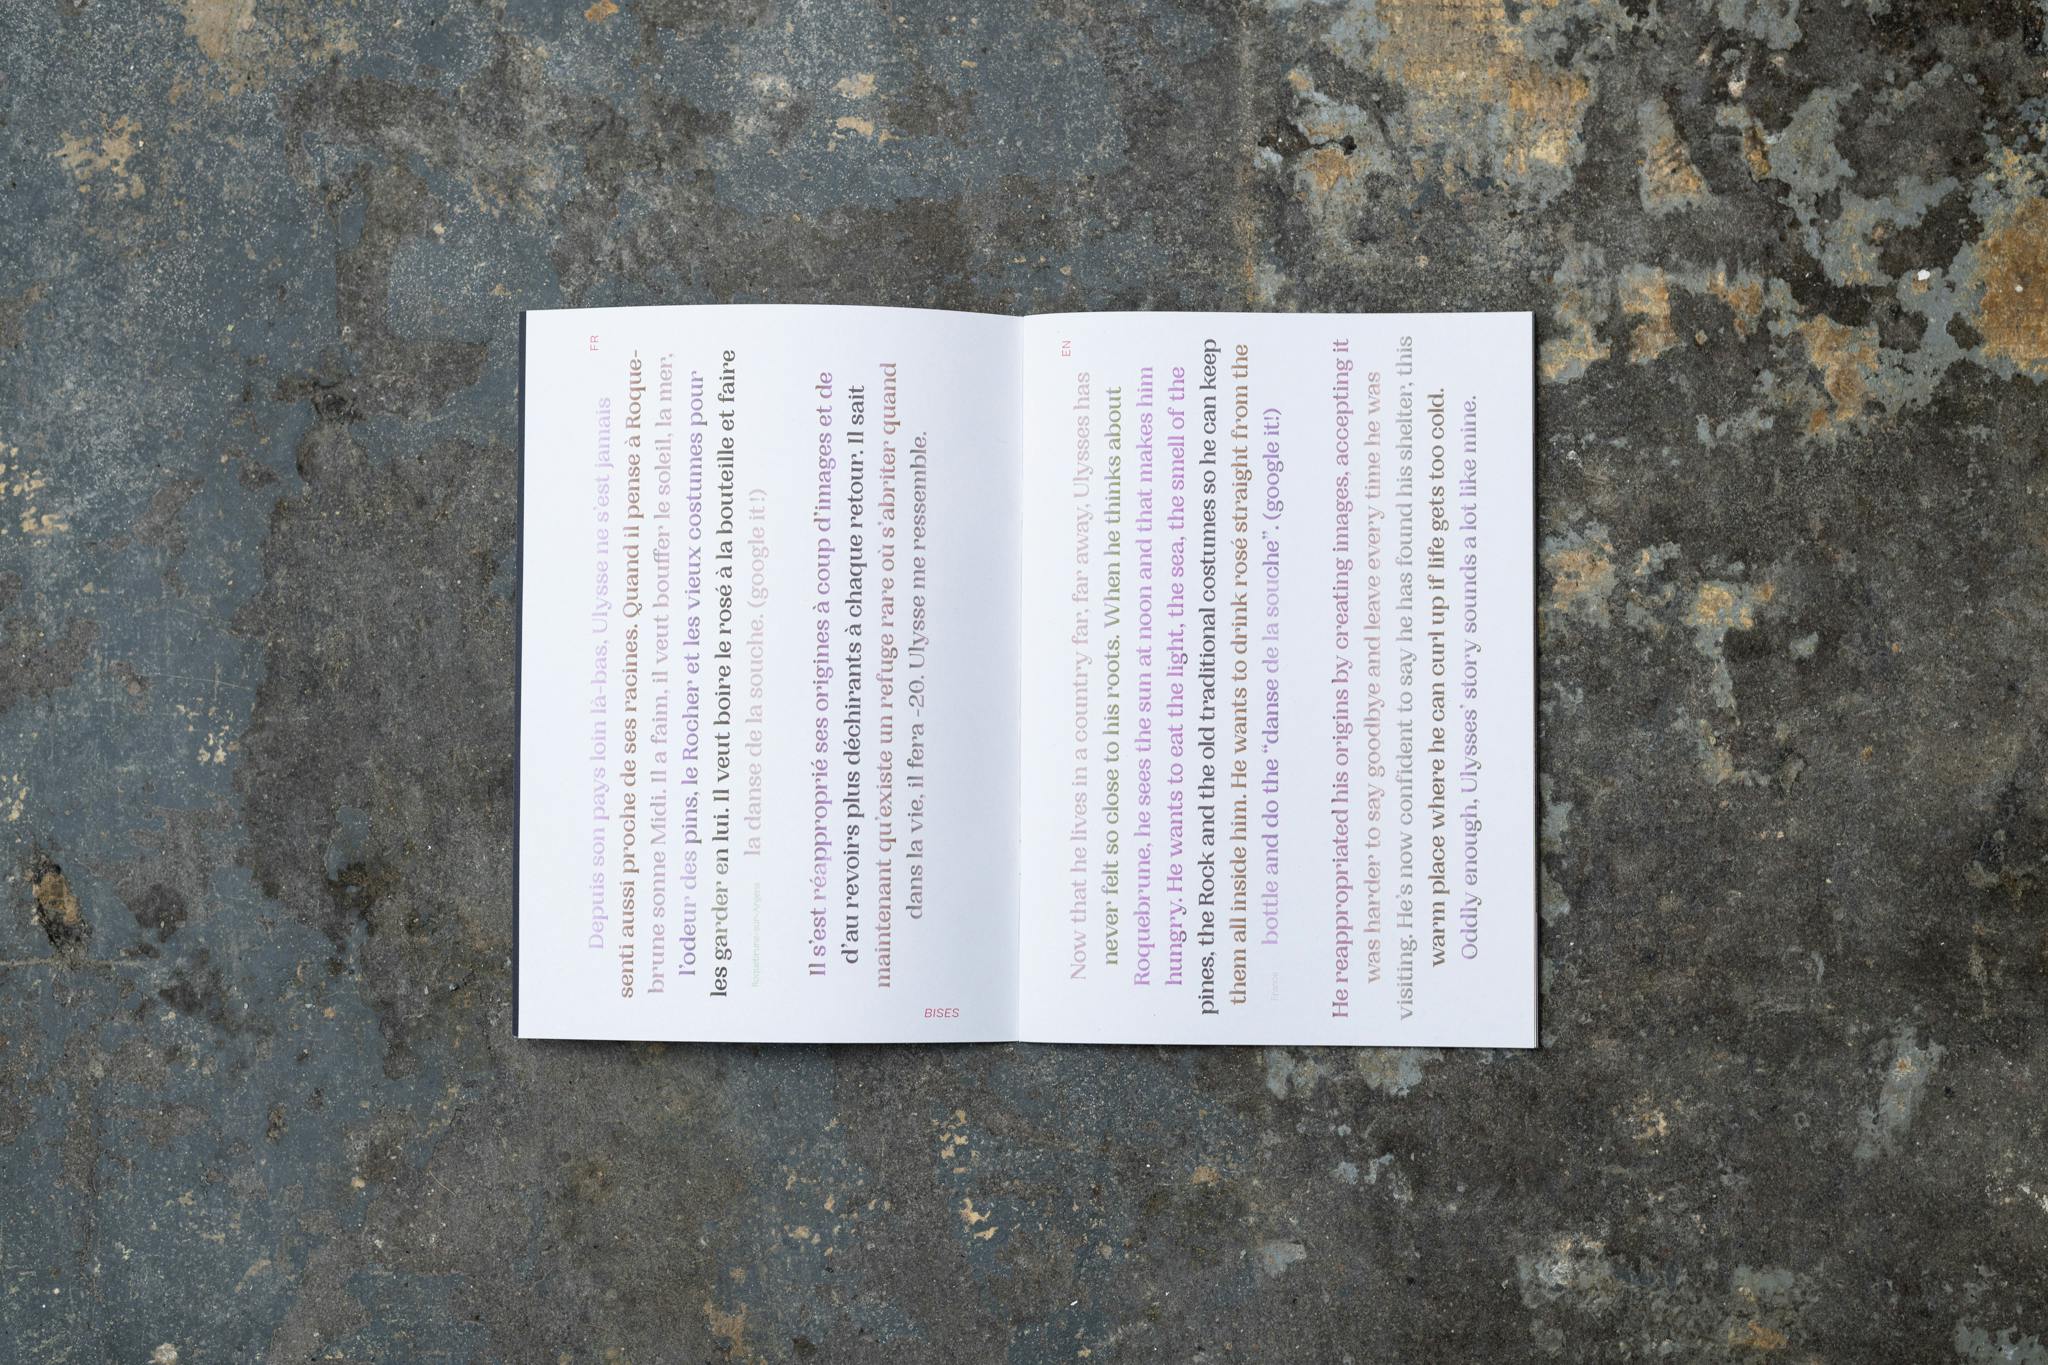 FR
Depuis son pays loin là-bas, Ulysse ne s'est jamais
senti aussi proche de ses racines. Quand il pense à Roque-
brune somme Midi. Il a faim, il veut bouffer le soleil, la mer,
l'odeur des pins, le Rocher et les vieux costumes pour
les garder en lui. Il veut boire le rosé à la bouteille et faire
la danse de la souche. (google it !)
Roquebrune-sur-Argens
Il s'est réapproprié ses origines à coup d'images et de
d'au revoirs plus déchirants à chaque retour. Il sait
maintenant qu'existe un refuge rare où s'abriter quand
dans la vie, il fera -20. Ulysse me ressemble.
BISES
EN
Now that he lives in a country far, far away, Ulysses has
never felt so close to his roots. When he thinks about
Roquebrune, he sees the sun at noon and that makes him
hungry. He wants to eat the light, the sea, the smell of the
pines, the Rock and the old traditional costumes so he can keep
them all inside him. He wants to drink rosé straight from the
bottle and do the “danse de la souche”. (google it!)
France
He reappropriated his origins by creating images, accepting it
was harder to say goodbye and leave every time he was
visiting. He's now confident to say he has found his shelter, this
warm place where he can curl up if life gets too cold.
Oddly enough, Ulysses' story sounds a lot like mine.